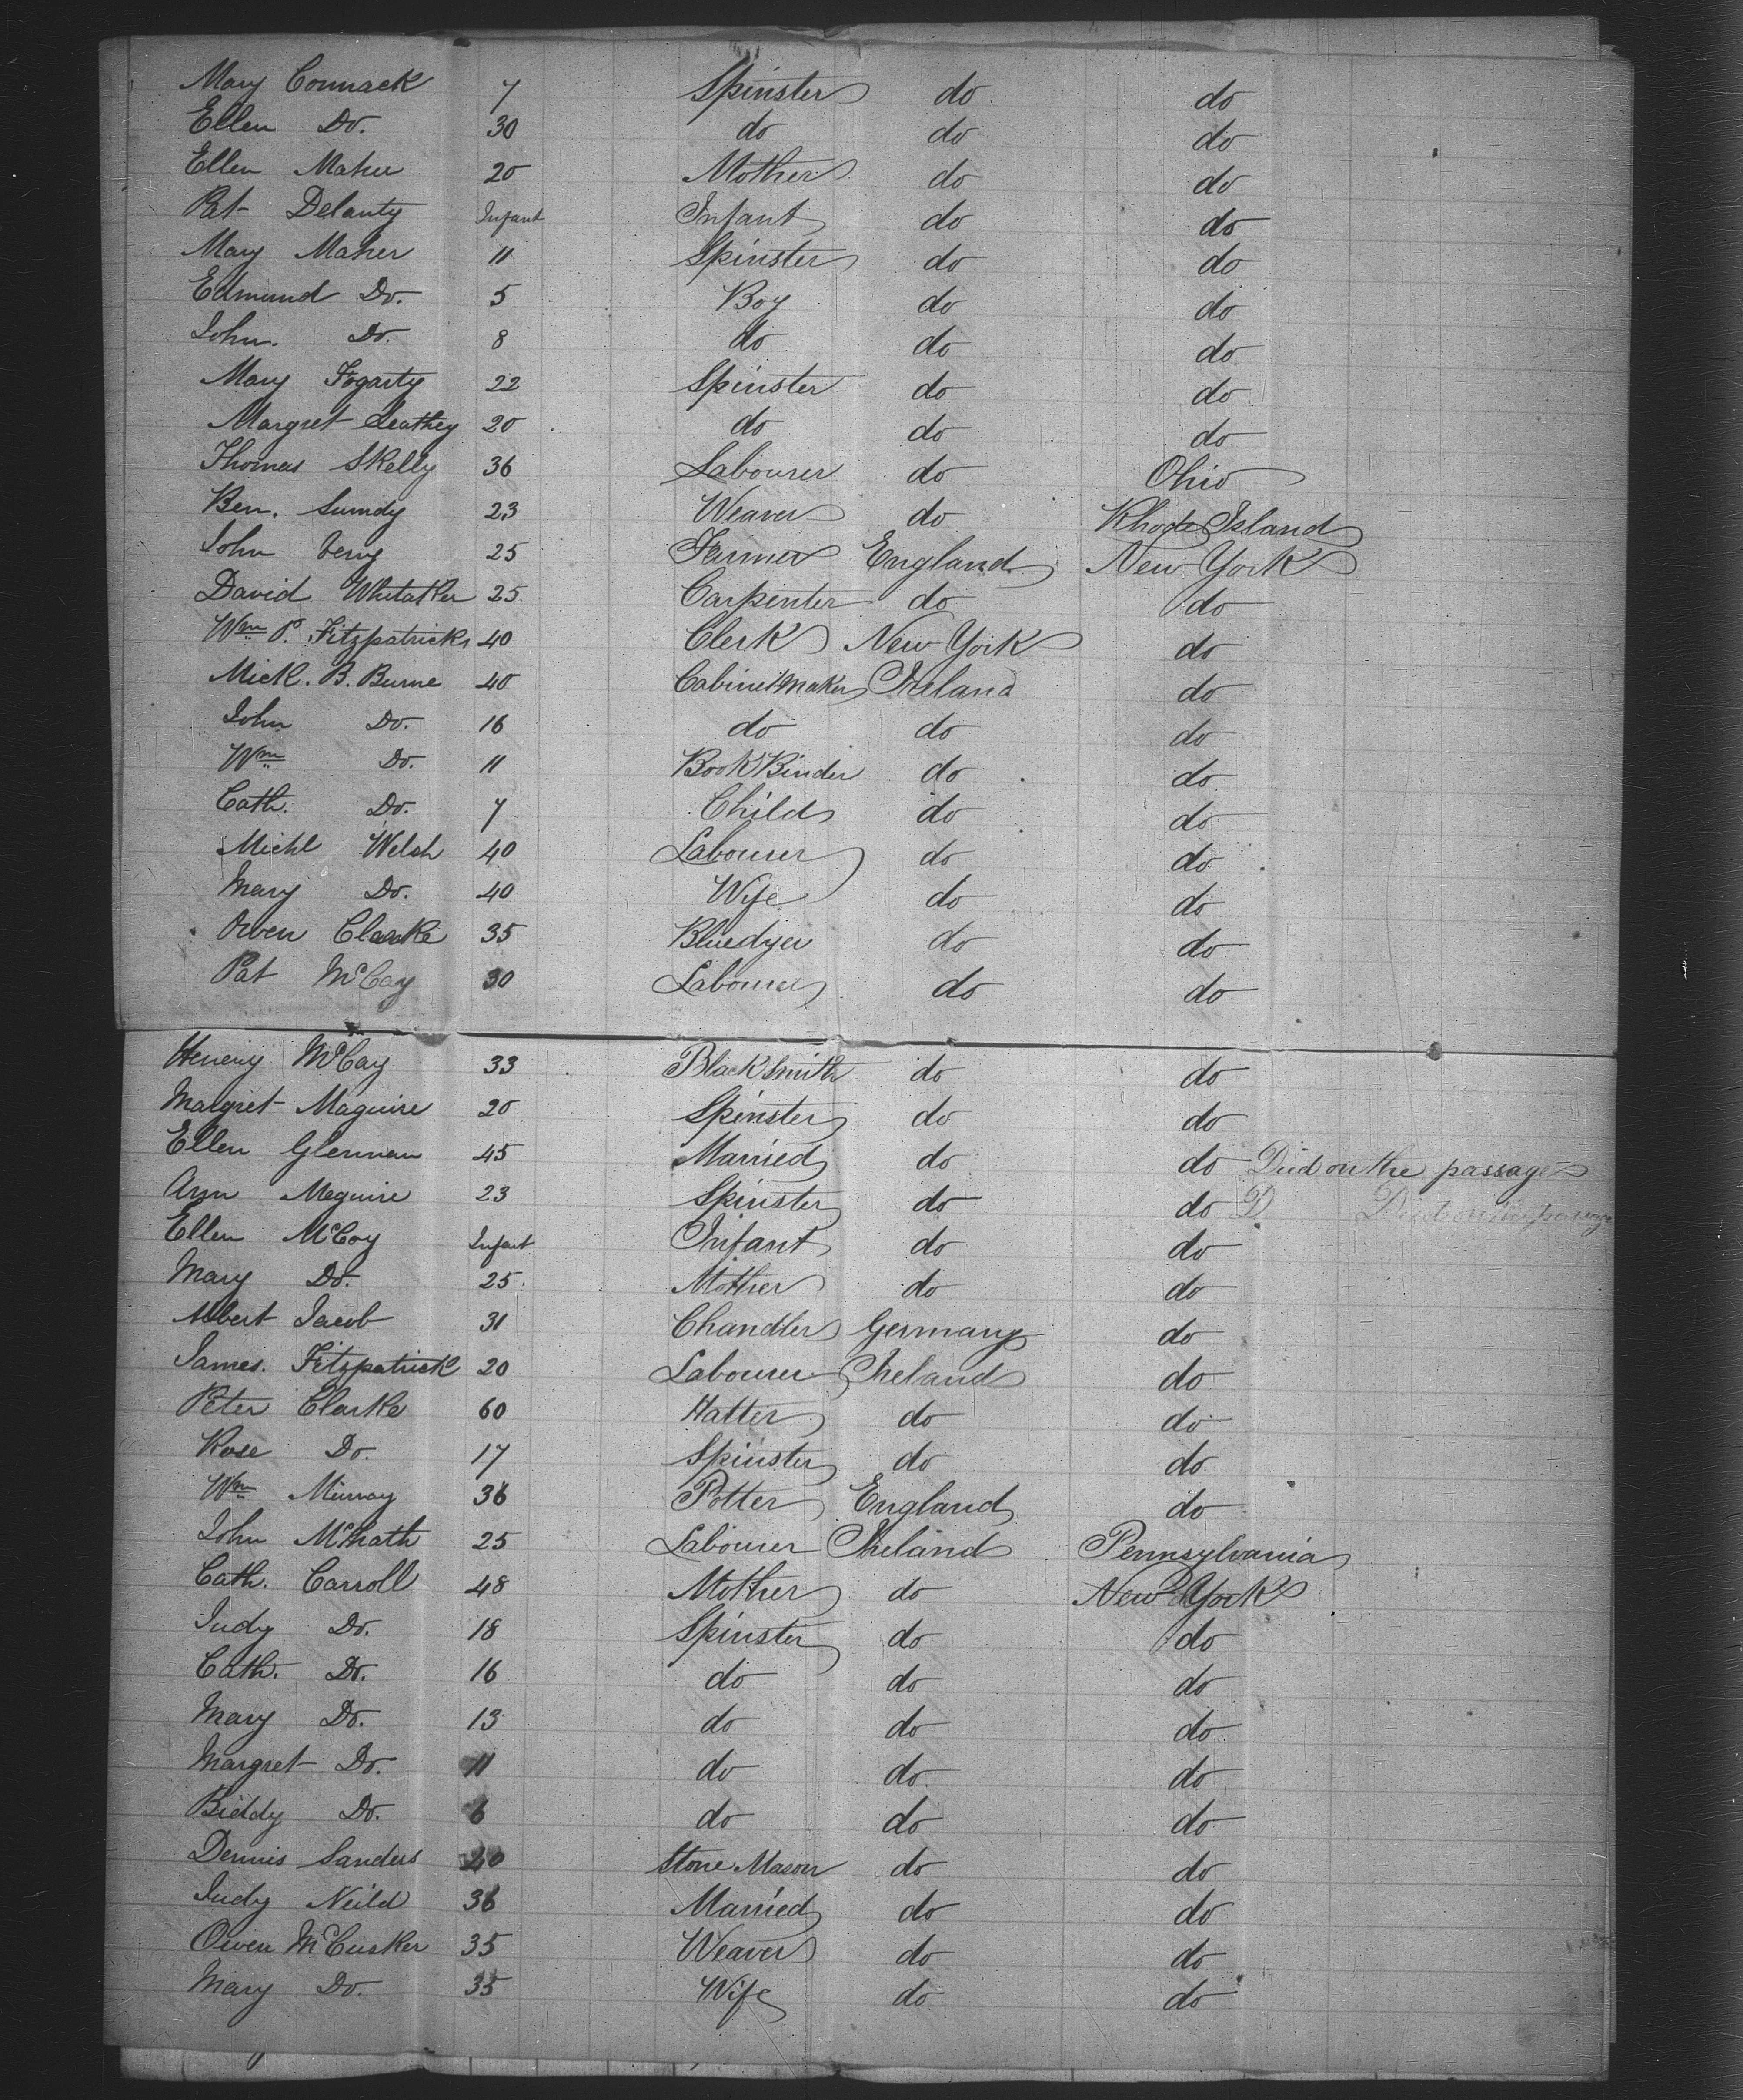 Mary Connack 7 Spinster do do
Ellen Do. 30 do do do
Ellen Maher 20 Mother do do
Pat Delanty Infant Infant do do
Mary Maher 11 Spinster do do
Edmund Do. 5 Boy do do
John. Do. 8 do do do
Mary Fogarty 22 Spinster do do
Margret Leathey 20 do do do
Thomas Skelly 36 Labourer do Ohio
Ben. 23 Weaver do Rhode Island
John 25 Farmer England New York
David Whitaker 25 Carpenter do do
Wm P. Fitzpatrick 40 Clerk New York do
Mick. B. Burne 40 Cabinetmaker Ireland do
John Do. 16 do do do
Wm Do. 11 Book Binder do do
Cath. Do. 7 Child do do
Michl Welsh 40 Labourer do do
Mary Do. 40 Wife do do
Owen Clarke 35 Bluedyer do do
Pat McCay 30 Labourer do do
Henery McCay 33 Blacksmith do do
Margret Maguire 20 Spinster do do
Ellen Glennan 45 Married do do Died on the passage
Ann Meguire 23 Spinster do do D Died on the passage
Ellen McCoy Infant Infant do do
Mary Do. 25 Mother do do
Albert Jacob 31 Chandler Germany do
James. Fitzpatrick 20 Labourer Ireland do
Peter Clarke 60 Hatter do do
Rose Do. 17 Spinster do do
Wm Murray 36 Potter England do
John McGrath 25 Labourer Ireland Pennsylvania
Cath. Carroll 48 Mother do New York
Judy Do. 18 Spinster do do
Cath. Do. 16 do do do
Mary Do. 13 do do do
Margret Do. 11 do do do
Biddy Do. 6 do do do
Dennis Sanders 40 Stone Mason do do
Judy Neild 36 Married do do
Owen McCusker 35 Weaver do do
Mary Do. 35 Wife do do